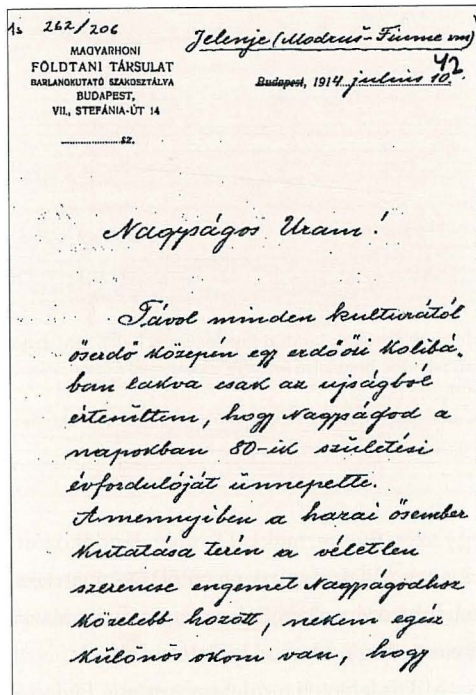 Is 262/206
Jelenje (Modruš-Fiume vm)
42
MAGYARHONI
FÖLDTANI TÁRSULAT
BARLANGKUTATÓ SZAKOSZTÁLYA
BUDAPEST,
VII., STEFÁNIA-ÚT 14
Budapest, 1914 julius 10.
sz.
Nagyságos Uram!
Távol minden kulturától
őserdő közepén egy erdőőri kolibá-
ban lakva csak az ujságból
értesültem, hogy Nagyságod a
napokban 80-ik születési
évfordulóját ünnepelte.
Amennyiben a hazai ősember
kutatása terén a véletlen
szerencse engemet Nagyságodhoz
közelebb hozott, nekem egész
különös okom van, hogy